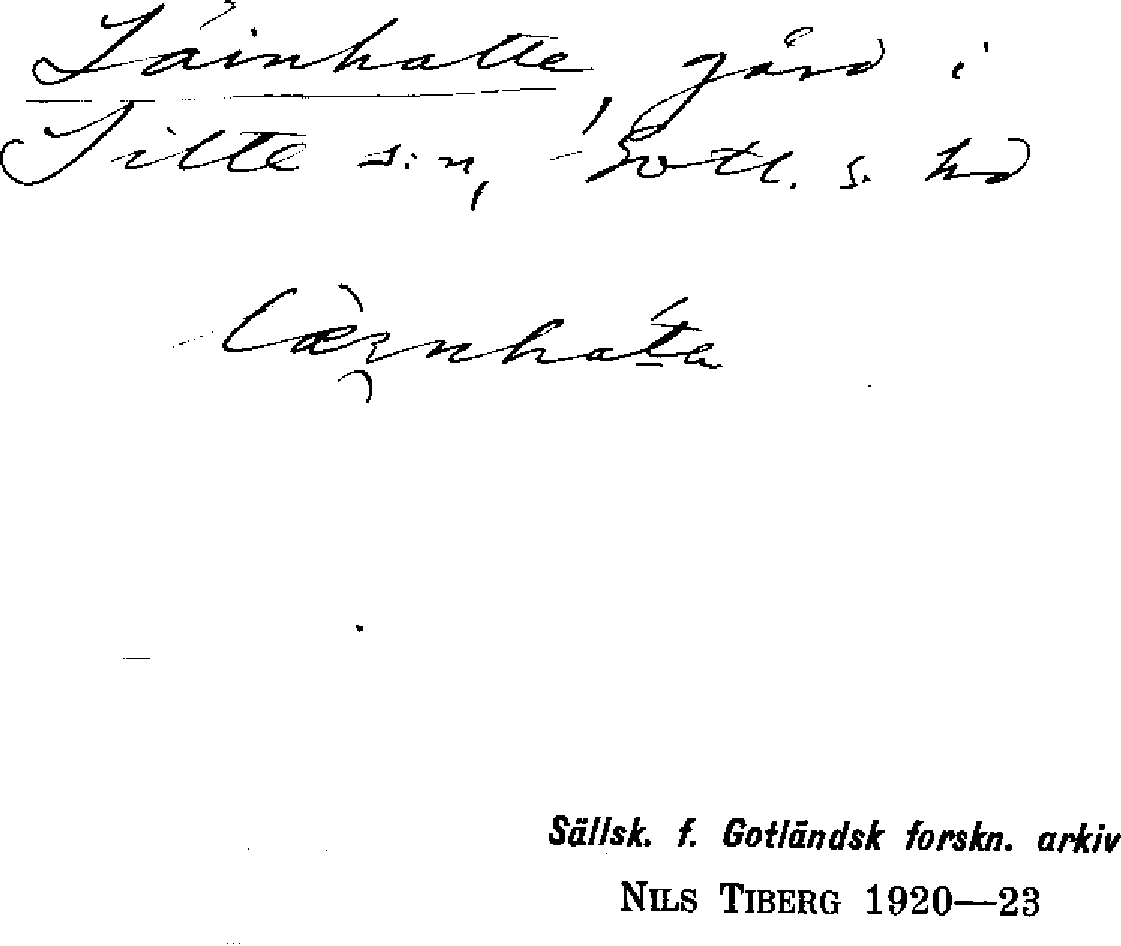 Láinhatte, gård i
Silte s:n, Gotl. s. hd
Sällsk. f. Gotländsk forskn. arkiv
NILS TIBERG 1920—23